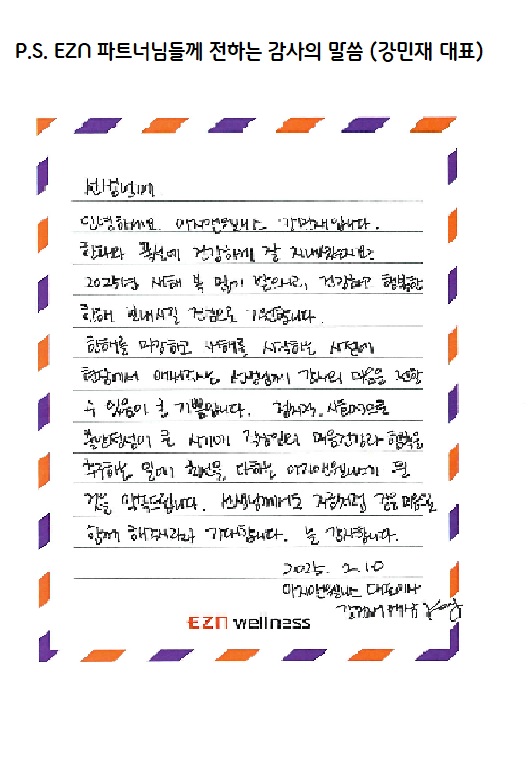 P.S. EZN 파트너님들께 전하는 감사의 말씀 (강민재 대표)
선생님께
안녕하세요. 이지앤웰니스 강민재입니다.
한파와 폭설에 건강하게 잘 지내셨는지요?
2025년 새해 복 많이 받으시고, 건강하고 행복한
한해 보내시길 진심으로 기원합니다.
한해를 마감하고 새해를 시작하는 시점에
현장에서 애써주시는 선생님께 감사의 마음을 전할
수 있음이 큰 기쁨입니다. 정치적, 사회적으로
불안정성이 큰 시기에 직장인의 마음건강과 행복을
추구하는 일에 최선을 다하는 이지앤웰니스가 될
것을 약속드립니다. 선생님께서도 지금처럼 같은 마음으로
함께 해주시리라 기대합니다. 늘 감사합니다.
2025. 2. 10
이지앤웰니스 대표이사
강민재
EZN wellness